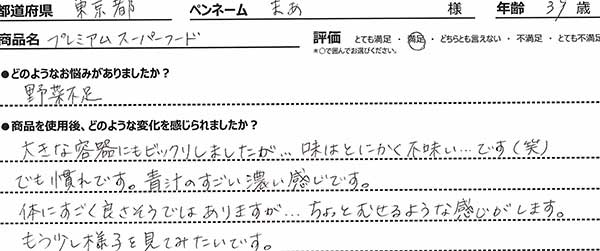 都道府県 東京都 ペンネーム まあ 様 年齢 39 歳
商品名 プレミアムスーパーフード 評価 とても満足 ・ 満足 ・ どちらとも言えない ・ 不満足 ・ とても不満足
*○で囲んでお選びください。
●どのようなお悩みがありましたか？
野菜不足
●商品を使用後、どのような変化を感じられましたか？
大きな容器にもビックリしましたが… 味はとにかく不味い…です(笑)
でも慣れです。青汁のすごい濃い感じです。
体にすごく良さそうではありますが… ちょっとむせるような感じがします。
もう少し様子を見てみたいです。